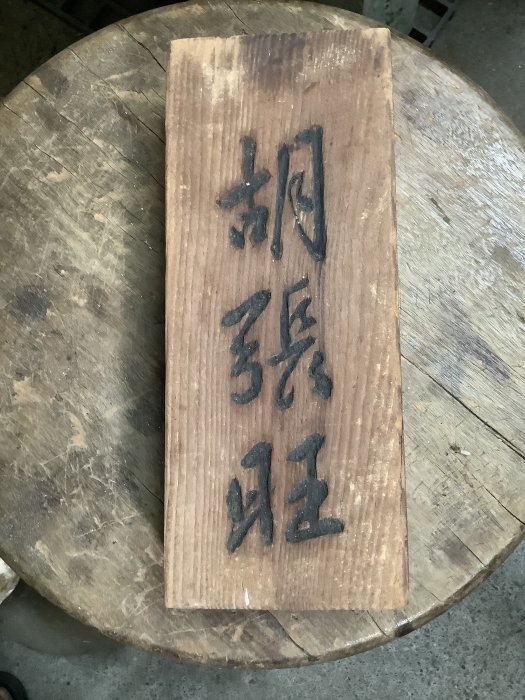 胡張旺